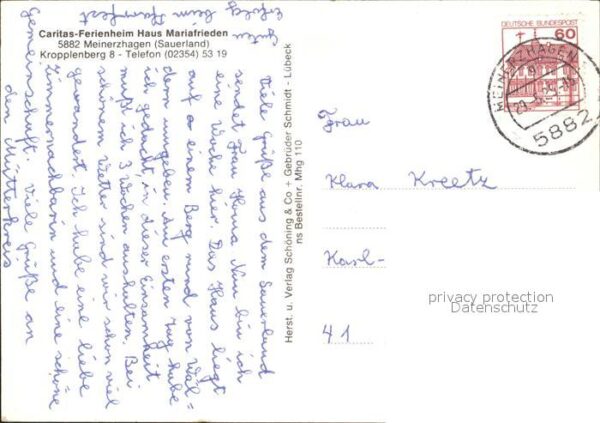 Caritas-Ferienheim Haus Mariafrieden
5882 Meinerzhagen (Sauerland)
Kropplenberg 8 - Telefon (02354) 53 19
Viele Grüße aus dem Sauerland
sendet Frau Nau bin ich
eine Woche hier. Das Haus liegt
auf a einem Berg rund von Wäl-
dern umgeben. Am ersten Tag habe
ich gedacht, in dieser Einsamkeit
mußt ich 3 Wochen aushalten. Bei
schönem Wetter sind wir schon viel
gewandert. Ich habe eine liebe
Zimmernachbarin und eine schöne
Gemeinschaft. Viele Grüße an
den Mütterkreis
Guten
Erfolg beim Pfarrfest
Herst. u. Verlag Schöning & Co + Gebrüder Schmidt - Lübeck
ns Bestellnr. Mhg 110
DEUTSCHE BUNDESPOST
60
MEINERZHAGEN
5882
Frau
Klara Kreetz
Karl-
41
privacy protection
Datenschutz